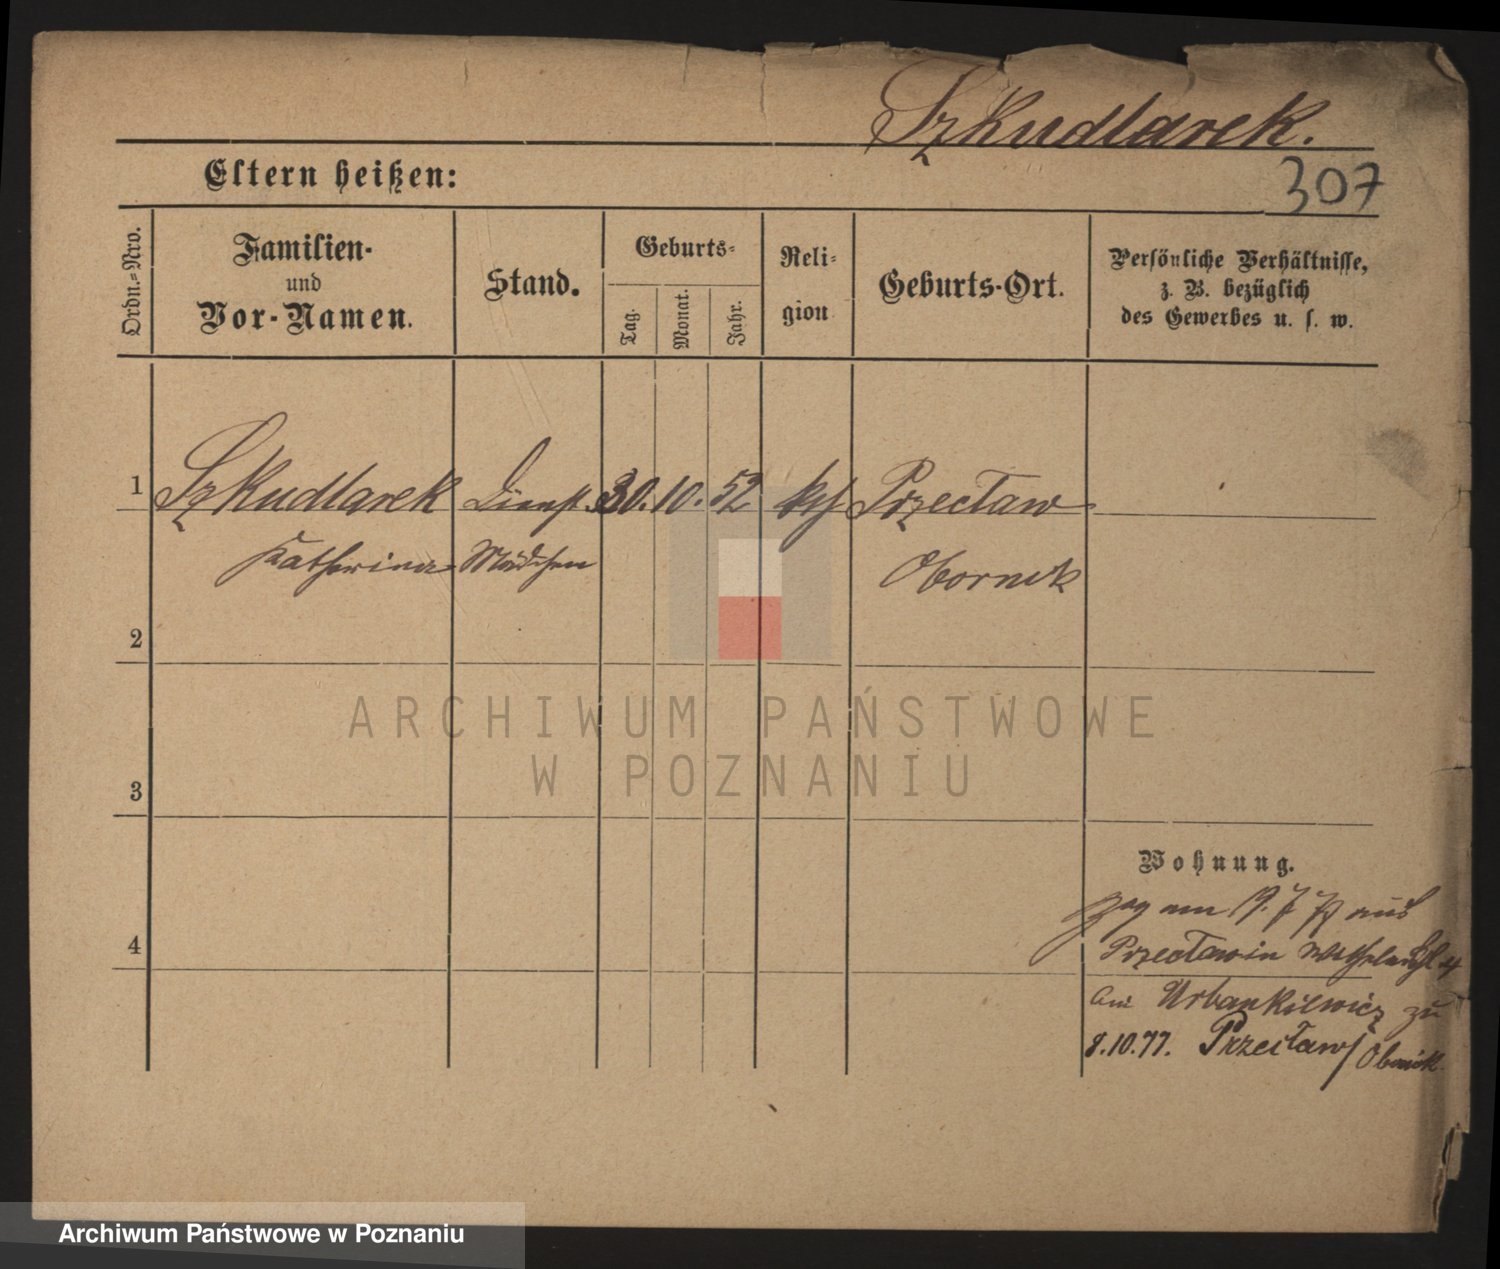 Szkudlarek.
Eltern heißen:
307
Ordn.-Nro.
Familien-
und
Vor-Namen.
Stand.
Geburts-
Tag.
Monat.
Jahr.
Reli-
gion
Geburts-Ort.
Persönliche Verhältnisse,
z. B. bezüglich
des Gewerbes u. s. w.
1 Szkudlarek Dienst 30. 10. 52 kth Przecław
Katharina Mädchen Obornik
2
ARCHIWUM PAŃSTWOWE
W POZNANIU
3
Wohnung.
zog am 9. 7 77 aus
4 Przecław in
Urbankiewicz zu
8.10.77. Przecław / Obornik.
Archiwum Państwowe w Poznaniu